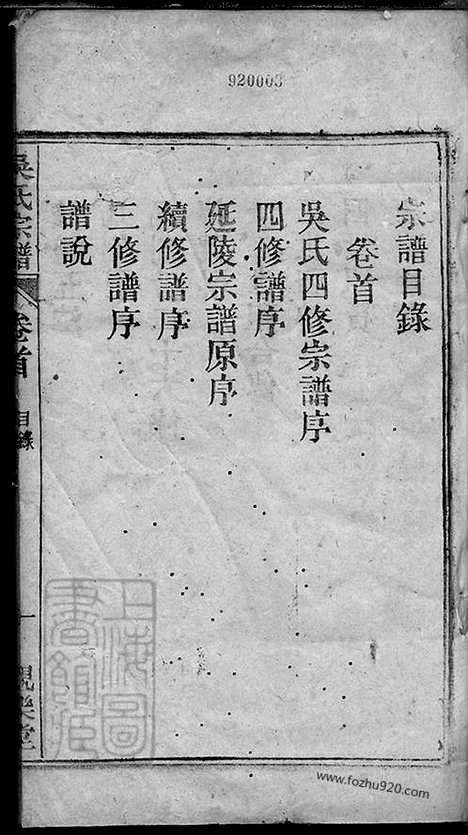 920003
宗譜目錄
卷首
吳氏四修宗譜序
四修譜序
延陵宗譜原序
續修譜序
三修譜序
譜說
吳氏宗譜
卷首
目錄
一
上海圖書館藏
www.fozhu920.com